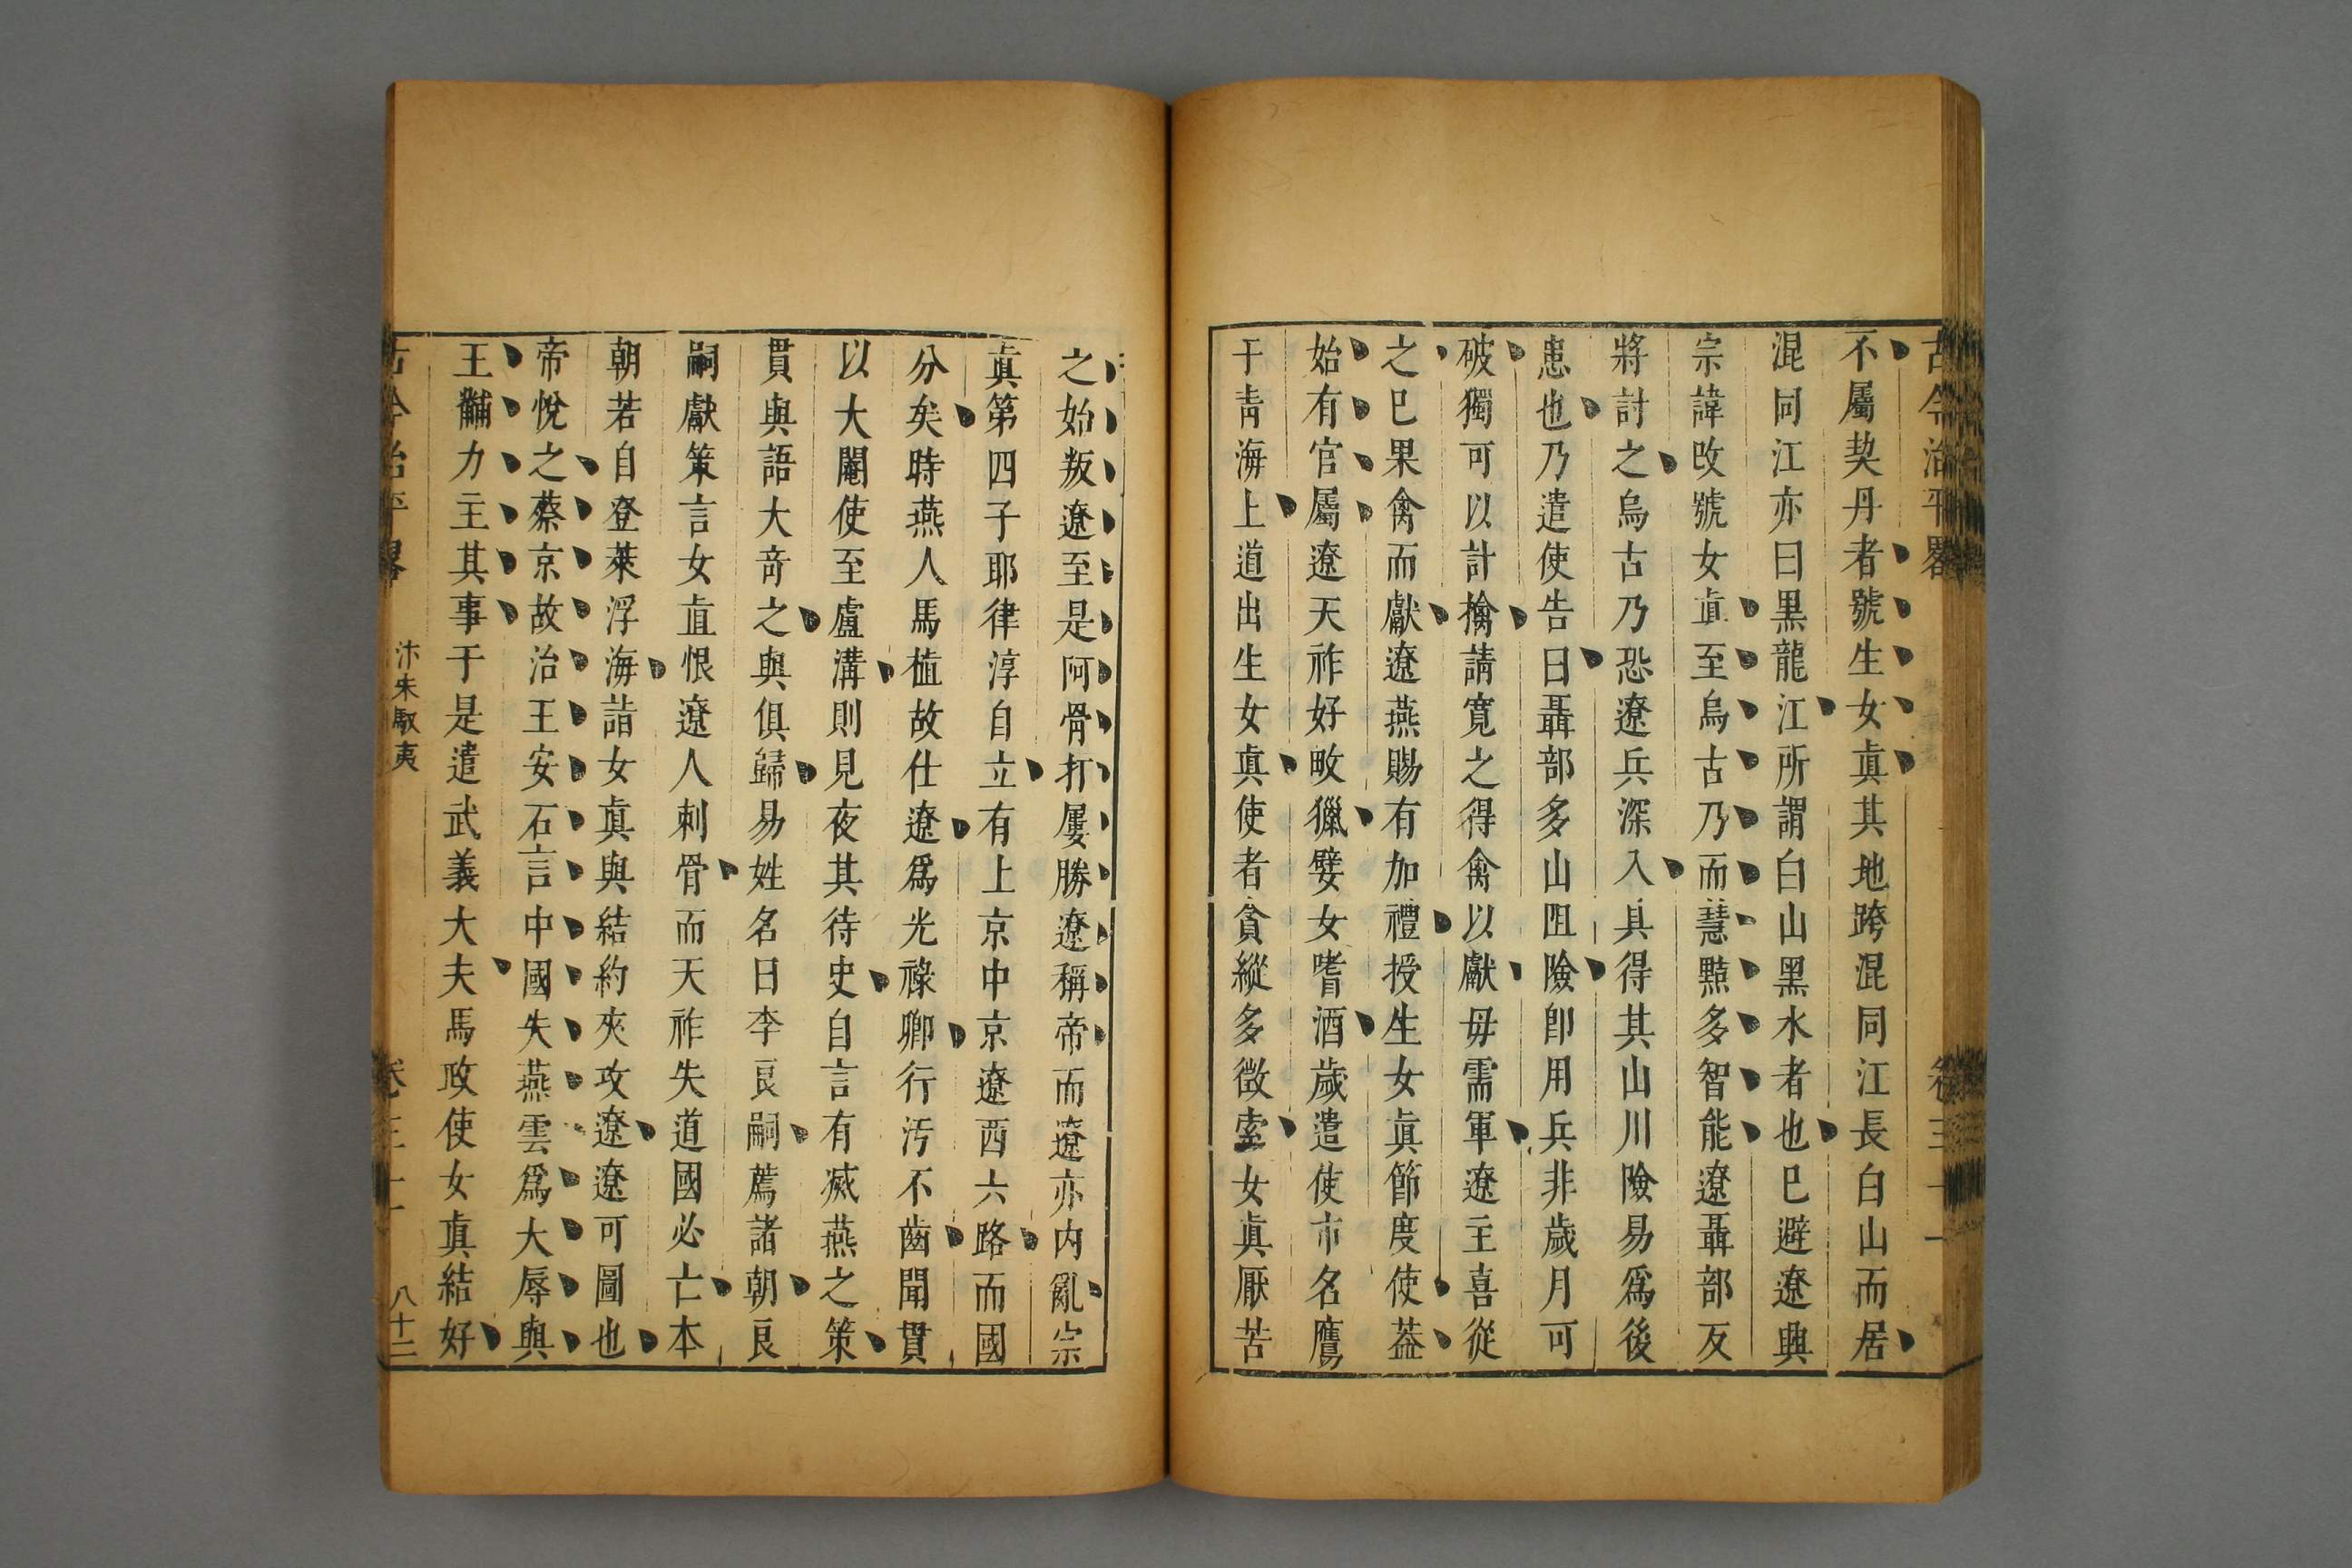 古今治平畧 卷三十一
不屬契丹者號生女眞其地跨混同江長白山而居
混同江亦曰黑龍江所謂白山黑水者也巳避遼興
宗諱改號女直至烏古乃而慧黠多智能遼聶部反
將討之烏古乃恐遼兵深入具得其山川險易爲後
患也乃遣使告曰聶部多山阻險卽用兵非歲月可
破獨可以計擒請寬之得禽以獻毋需軍遼主喜從
之巳果禽而獻遼燕賜有加禮授生女眞節度使葢
始有官屬遼天祚好畋獵嬖女嗜酒歲遣使市名鷹
于青海上道出生女眞使者貪縱多徵索女眞厭苦
之始叛遼至是阿骨打屢勝遼稱帝而遼亦内亂宗
眞第四子耶律淳自立有上京中京遼西六路而國
分矣時燕人馬植故仕遼爲光祿卿行汚不齒聞貫
以大閹使至盧溝則見夜其待史自言有㓕燕之策
貫與語大奇之與俱歸易姓名曰李良嗣薦諸朝良
嗣獻策言女直恨遼人刺骨而天祚失道國必亡本
朝若自登萊浮海詣女眞與結約夾攻遼遼可圖也
帝悅之蔡京故治王安石言中國失燕雲爲大辱與
王黼力主其事于是遣武義大夫馬政使女眞結好
古今治平畧 汴宋馭夷 卷三十一 八十二